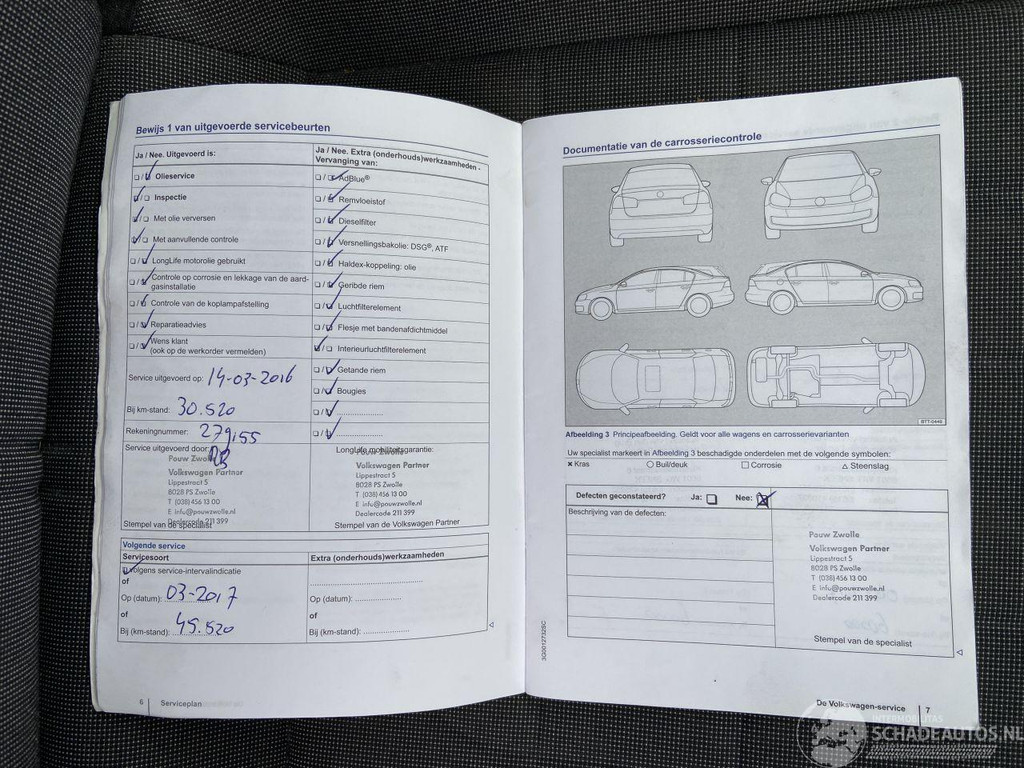 Bewijs 1 van uitgevoerde servicebeurten
Ja / Nee. Uitgevoerd is:
Olieservice
Inspectie
Met olie verversen
Met aanvullende controle
LongLife motorolie gebruikt
Controle op corrosie en lekkage van de aard-
gasinstallatie
Controle van de koplampafstelling
Reparatieadvies
Wens klant
(ook op de werkorder vermelden)
Service uitgevoerd op: 14-03-2016
Bij km-stand: 30.520
Rekeningnummer: 279155
Service uitgevoerd door:
Pouw Zwolle
Volkswagen Partner
Lippestraat 5
8028 PS Zwolle
T (038) 456 13 00
E info@pouwzwolle.nl
Dealercode 211 399
Stempel van de specialist
Ja / Nee. Extra (onderhouds)werkzaamheden -
Vervanging van:
AdBlue®
Remvloeistof
Dieselfilter
Versnellingsbakolie: DSG®, ATF
Haldex-koppeling: olie
Geribde riem
Luchtfilterelement
Flesje met bandenafdichtmiddel
Interieurluchtfilterelement
Getande riem
Bougies
LongLife mobiliteitsgarantie:
Pouw Zwolle
Volkswagen Partner
Lippestraat 5
8028 PS Zwolle
T (038) 456 13 00
E info@pouwzwolle.nl
Dealercode 211 399
Stempel van de Volkswagen Partner
Volgende service
Servicesoort
Volgens service-intervalindicatie
of
Op (datum): 03-2017
of
Bij (km-stand): 45.520
Extra (onderhouds)werkzaamheden
Op (datum):
of
Bij (km-stand):
6 Serviceplan
Documentatie van de carrosseriecontrole
BTT-0446
Afbeelding 3 Principeafbeelding. Geldt voor alle wagens en carrosserievarianten
Uw specialist markeert in Afbeelding 3 beschadigde onderdelen met de volgende symbolen:
× Kras ○ Buil/deuk □ Corrosie △ Steenslag
Defecten geconstateerd? Ja: Nee:
Beschrijving van de defecten:
Pouw Zwolle
Volkswagen Partner
Lippestraat 5
8028 PS Zwolle
T (038) 456 13 00
E info@pouwzwolle.nl
Dealercode 211 399
Stempel van de specialist
3G0012732SC
De Volkswagen-service 7
INTERMOBILITAS
SCHADEAUTOS.NL